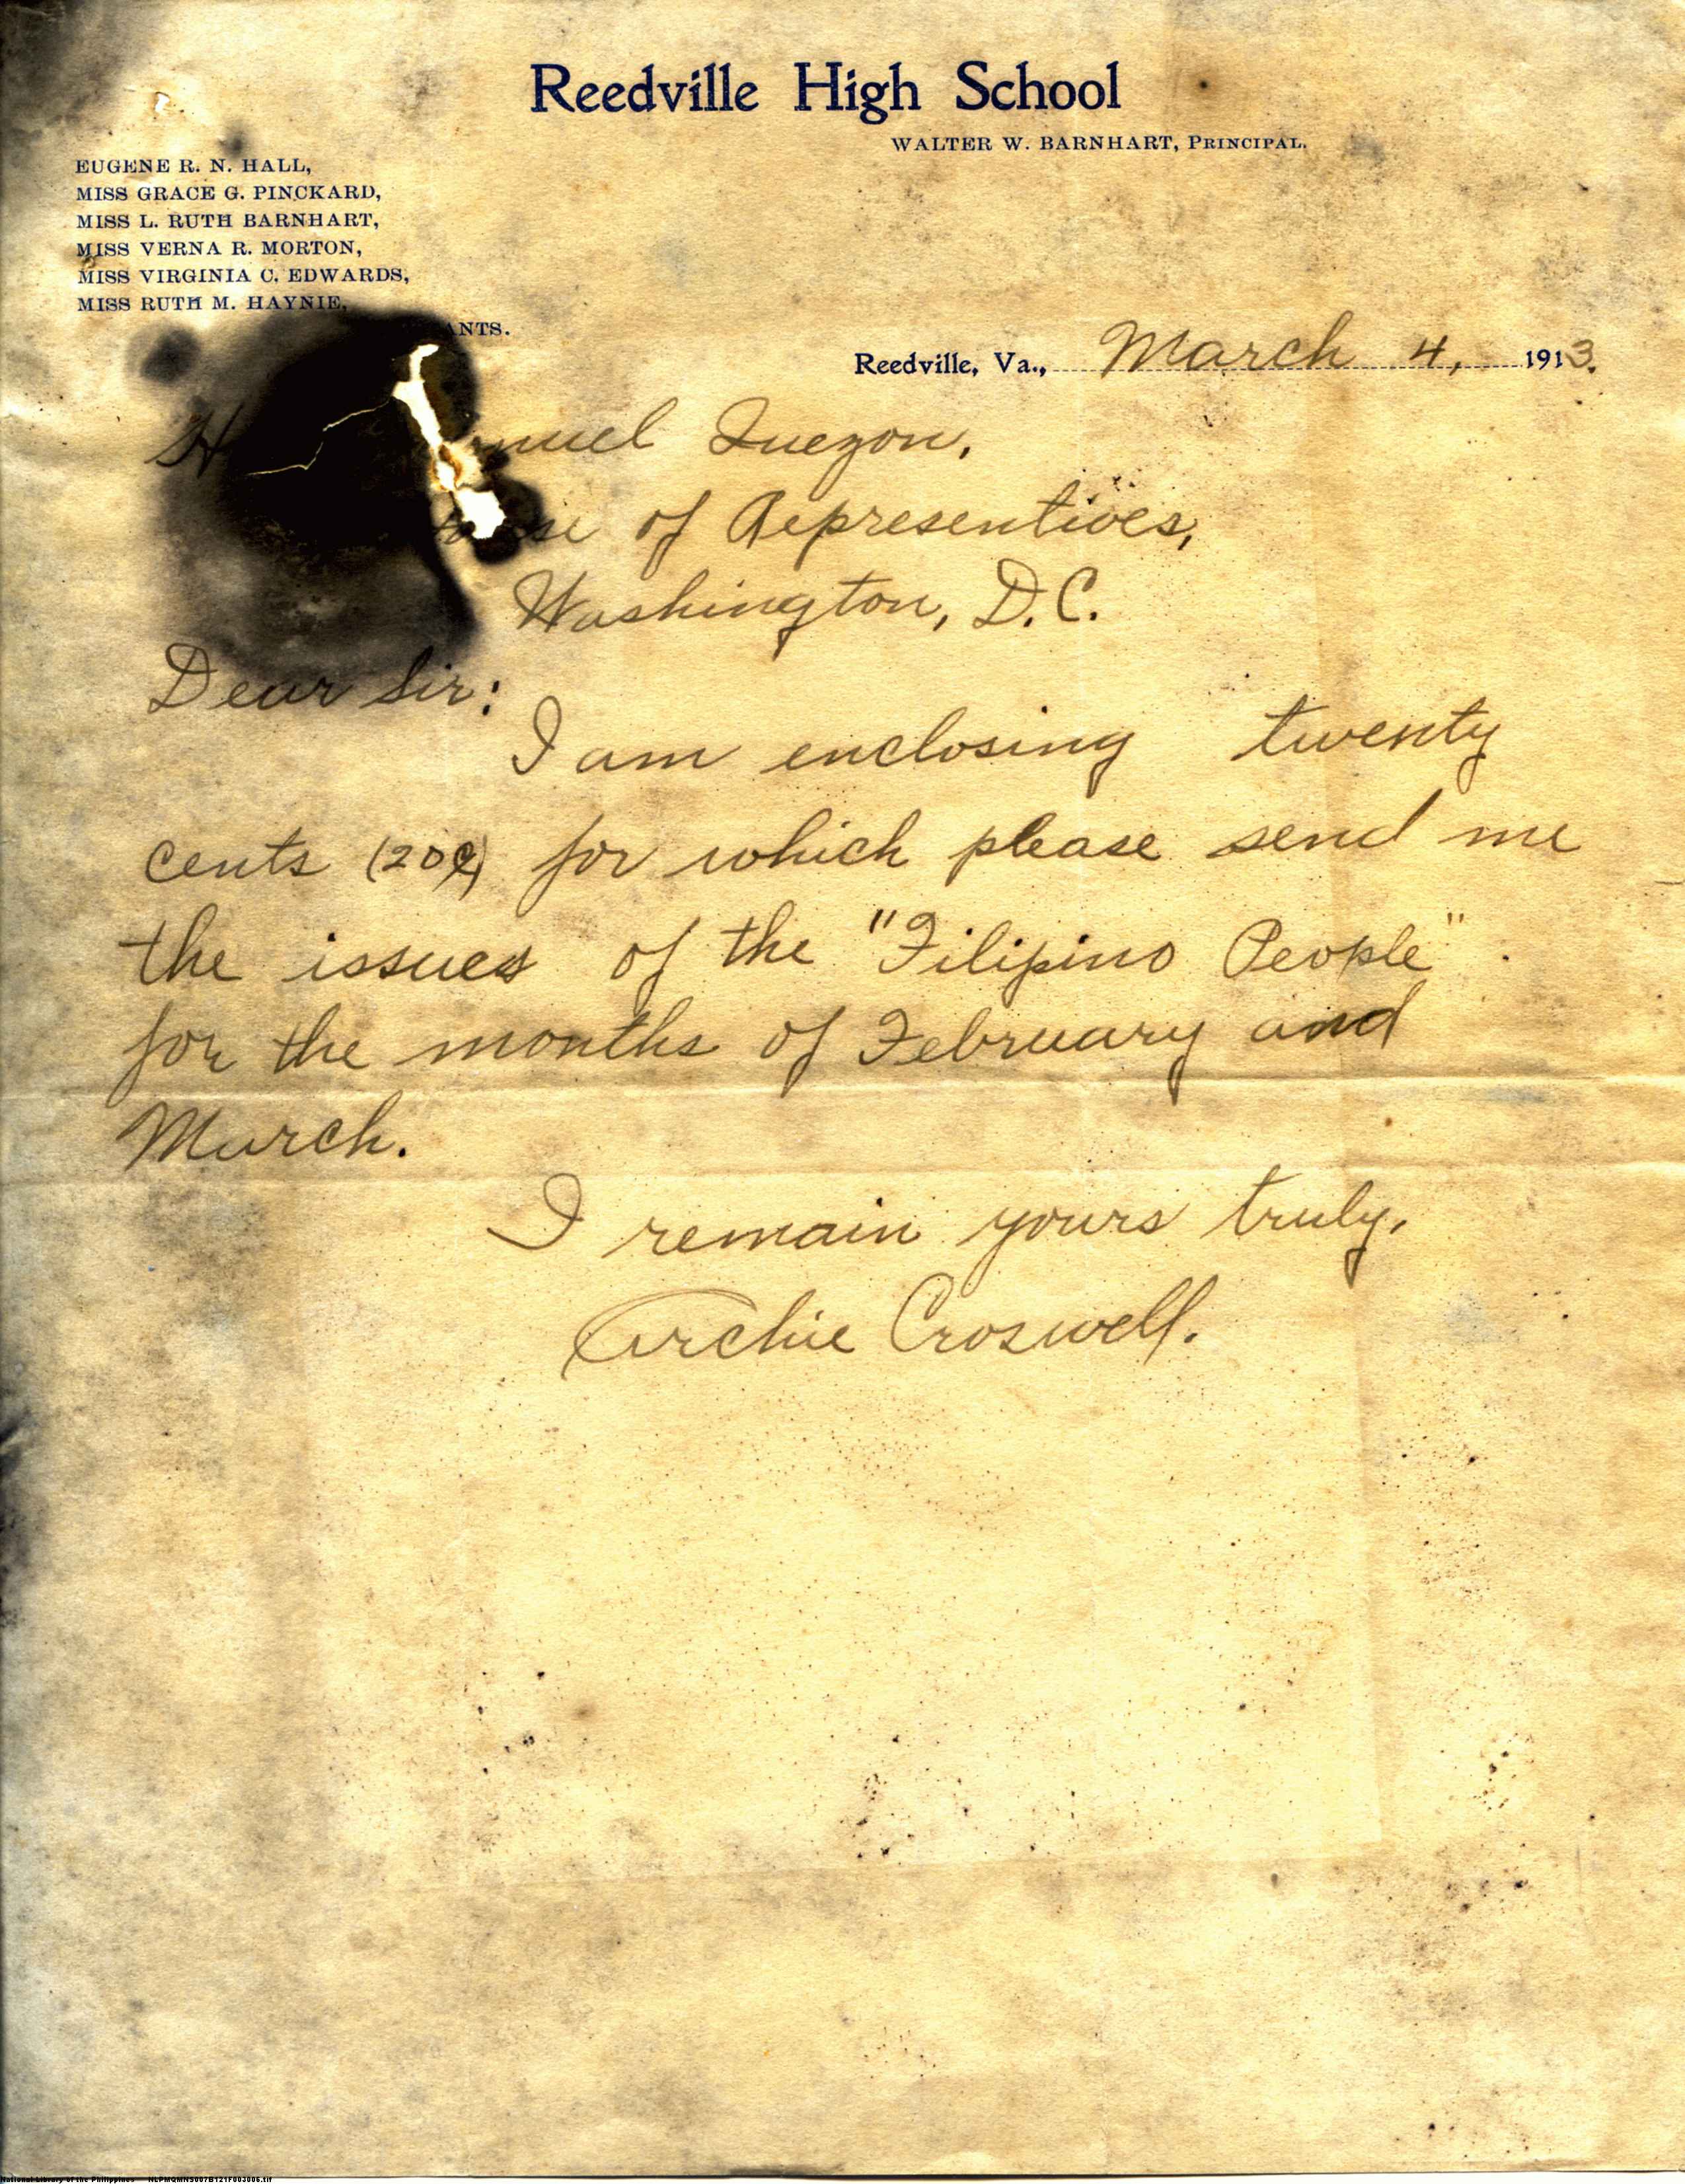 Reedville High School
WALTER W. BARNHART, PRINCIPAL.
EUGENE R. N. HALL,
MISS GRACE G. PINCKARD,
MISS L. RUTH BARNHART,
MISS VERNA R. MORTON,
MISS VIRGINIA C. EDWARDS,
MISS RUTH M. HAYNIE,
ANTS.
Reedville, Va., March 4, 1913.
H nuel Quezon,
House of Representives,
Washington, D.C.
Dear Sir:
I am enclosing twenty
cents (20¢) for which please send me
the issues of the "Filipino People".
for the months of February and
March.
I remain yours truly,
Archie Croswell.
National Library of the Philippines